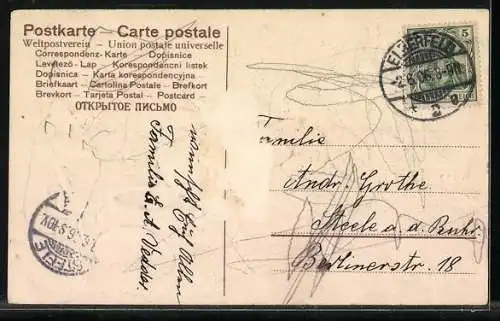 Postkarte – Carte postale
Weltpostverein – Union postale universelle
Correspondenz-Karte – Dopisnice
Levelező-Lap – Korespondencni listek
Dopisnica – Karta korespondencyjna
Briefkaart – Cartolina Postale – Brefkort
Brevkort – Tarjeta Postal – Postcard
ОТКРЫТОЕ ПИСЬМО
wünscht Euch Allen
Familie
5
ELBERFELD
2
Familie
Andr. Grothe
Steele a. d. Ruhr.
Berlinerstr. 18